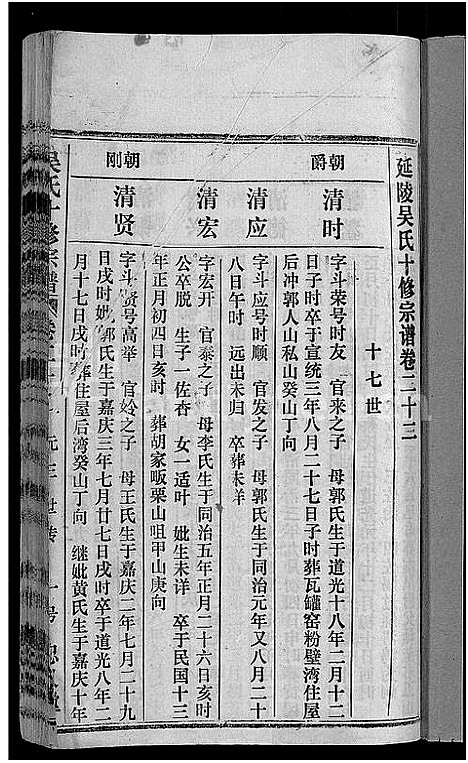 延陵吴氏十修宗谱卷三十三
十七世
朝爵
清时
字斗荣号时友 官来之子 母郭氏生于道光十八年二月十二
日子时卒于宣统三年八月二十七日子时葬瓦罐窑粉壁湾住屋
后冲郭人山私山癸山丁向
清应
字斗应号时顺 官发之子 母郭氏生于同治元年又八月二十
八日午时 远出未归 卒葬未详
清宏
字宏开 官泰之子 母李氏生于同治五年正月二十六日亥时
公卒脱 生子一佐杏 女一适叶 妣生未详 卒于民国十三
年正月初四日亥时 葬胡家畈栗山咀甲山庚向
朝刚
清贤
字斗贤号高举 官姈之子 母王氏生于嘉庆二年七月二十九
日戌时妣郭氏生于嘉庆三年七月廿七日戌时卒于道光八年二
月十七日戌时葬住屋后湾癸山丁向 继妣黄氏生于嘉庆十年
吴氏十修宗谱